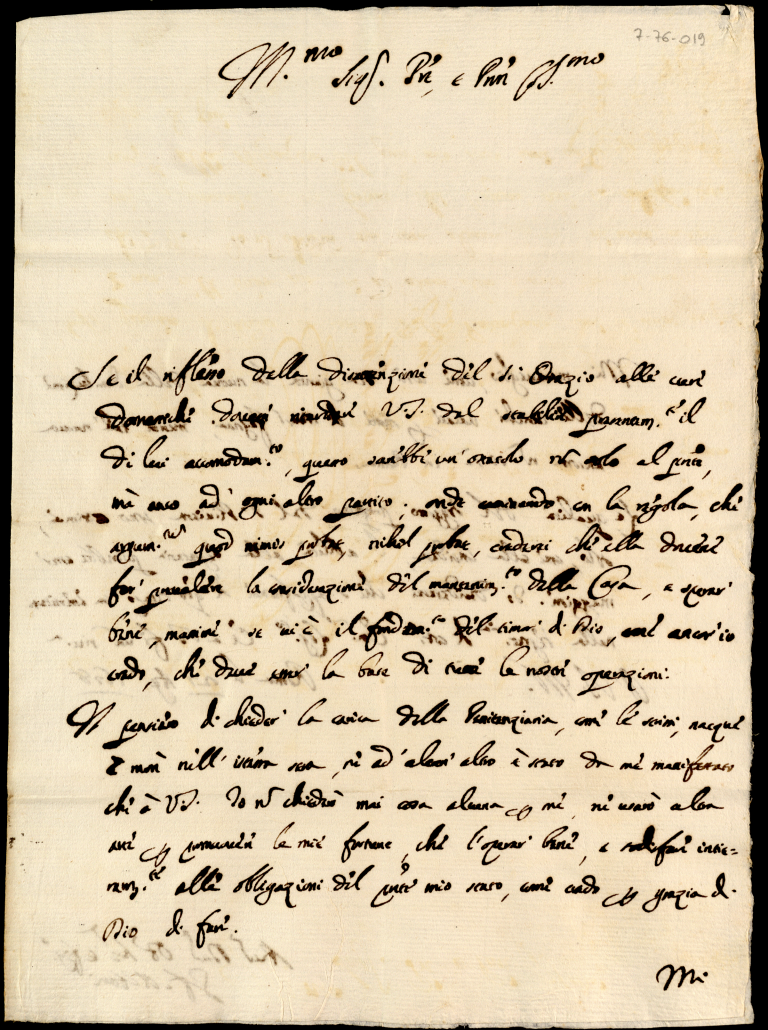 7-76-019
M.mo Sig.r Pñ, e Pñn
Se il riflesso delle dissenzioni del S.r Orazio alle cure
domestiche dovesse V.S. dal stabilire presentem.te il
di lui accomodam.to, questo sarebbe un' ostacolo nõ solo al posto,
mà anco ad' ogni altro partito; onde caminando con la regola, che
argum.tum quod nimis probat, nihil probat, crederei che ella dovesse
far prevalere la considerazione del mantenim.to della Casa, e sperar
bene, massime se vi è il fondam.to del timor di Dio, come ancor io
credo, che deve esser la base di tutte le nostre operazioni.
Il pensiero di chieder la carica della Penitenziaria, come le scrissi, nacque
e morì nell' istessa sera, nè ad' alcun' altro è stato da me manifestato
che à V.S. Io nõ chiederò mai cosa alcuna p me, nè userò altra
arte p promovere le mie fortune, che l'operar bene, e sodisfare intie=
ram.te alle obligazioni del pnte mio stato, come credo p grazia di
Dio di fare.
Mi